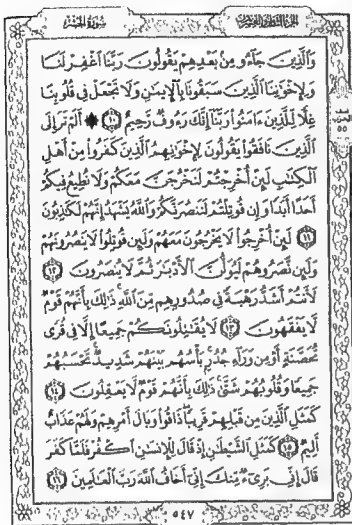 سورة الحشر
الجزء الثامن والعشرون
وَالَّذِينَ جَآءُو مِنۢ بَعْدِهِمْ يَقُولُونَ رَبَّنَا ٱغْفِرْ لَنَا
وَلِإِخْوَٰنِنَا ٱلَّذِينَ سَبَقُونَا بِٱلْإِيمَٰنِ وَلَا تَجْعَلْ فِى قُلُوبِنَا
غِلًّا لِّلَّذِينَ ءَامَنُوا۟ رَبَّنَآ إِنَّكَ رَءُوفٌ رَّحِيمٌ ١٠ ۞ أَلَمْ تَرَ إِلَى
ٱلَّذِينَ نَافَقُوا۟ يَقُولُونَ لِإِخْوَٰنِهِمُ ٱلَّذِينَ كَفَرُوا۟ مِنْ أَهْلِ
ٱلْكِتَٰبِ لَئِنْ أُخْرِجْتُمْ لَنَخْرُجَنَّ مَعَكُمْ وَلَا نُطِيعُ فِيكُمْ
أَحَدًا أَبَدًا وَإِن قُوتِلْتُمْ لَنَنصُرَنَّكُمْ وَٱللَّهُ يَشْهَدُ إِنَّهُمْ لَكَٰذِبُونَ
١١ لَئِنْ أُخْرِجُوا۟ لَا يَخْرُجُونَ مَعَهُمْ وَلَئِن قُوتِلُوا۟ لَا يَنصُرُونَهُمْ
وَلَئِن نَّصَرُوهُمْ لَيُوَلُّنَّ ٱلْأَدْبَٰرَ ثُمَّ لَا يُنصَرُونَ ١٢
لَأَنتُمْ أَشَدُّ رَهْبَةً فِى صُدُورِهِم مِّنَ ٱللَّهِ ذَٰلِكَ بِأَنَّهُمْ قَوْمٌ
لَّا يَفْقَهُونَ ١٣ لَا يُقَٰتِلُونَكُمْ جَمِيعًا إِلَّا فِى قُرًى
مُّحَصَّنَةٍ أَوْ مِن وَرَآءِ جُدُرٍۭ بَأْسُهُم بَيْنَهُمْ شَدِيدٌ تَحْسَبُهُمْ
جَمِيعًا وَقُلُوبُهُمْ شَتَّىٰ ذَٰلِكَ بِأَنَّهُمْ قَوْمٌ لَّا يَعْقِلُونَ ١٤
كَمَثَلِ ٱلَّذِينَ مِن قَبْلِهِمْ قَرِيبًا ذَاقُوا۟ وَبَالَ أَمْرِهِمْ وَلَهُمْ عَذَابٌ
أَلِيمٌ ١٥ كَمَثَلِ ٱلشَّيْطَٰنِ إِذْ قَالَ لِلْإِنسَٰنِ ٱكْفُرْ فَلَمَّا كَفَرَ
قَالَ إِنِّى بَرِىٓءٌ مِّنكَ إِنِّىٓ أَخَافُ ٱللَّهَ رَبَّ ٱلْعَٰلَمِينَ ١٦
٥٤٧